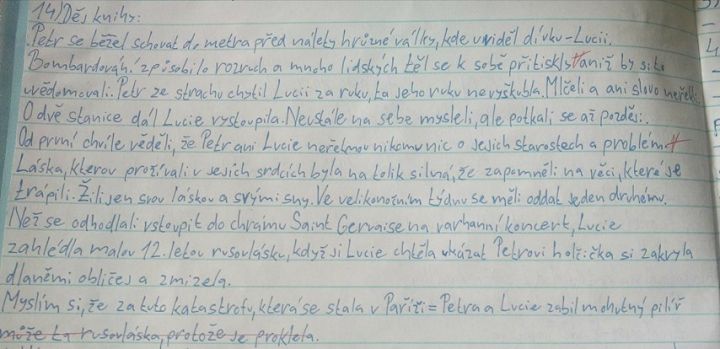 14) Děj knihy:
Petr se běžel schovat do metra před nálety hrůzné války, kde uviděl dívku-Lucii.
Bombardování způsobilo rozruch a mnoho lidských těl se k sobě přitisklo aniž by si to
uvědomovali. Petr ze strachu chytil Lucii za ruku, ta jeho ruku nevyškubla. Mlčeli a ani slovo neřekli.
O dvě stanice dál Lucie vystoupila. Neustále na sebe mysleli, ale potkali se až později.
Od první chvíle věděli, že Petr ani Lucie neřeknou nikomu nic o jejich starostech a problém
Láska, kterov prožívali v jejich srdcích byla na tolik silná, že zapomněli na věci, které je
trápili. Žili jen svou láskou a svými sny. Ve velikonočním týdnu se měli oddat jeden druhému.
Než se odhodlali vstoupit do chrámu Saint Gervaise na varhanní koncert, Lucie
zahlédla malou 12. letou rusovlásku, když ji Lucie chtěla ukázat Petrovi holčička si zakryla
dlaněmi obličej a zmizela.
Myslím si, že za tuto katastrofu, která se stala v Paříži = Petra a Lucie zabil mohutný pilíř
může ta rusovláska, protože je proklela.